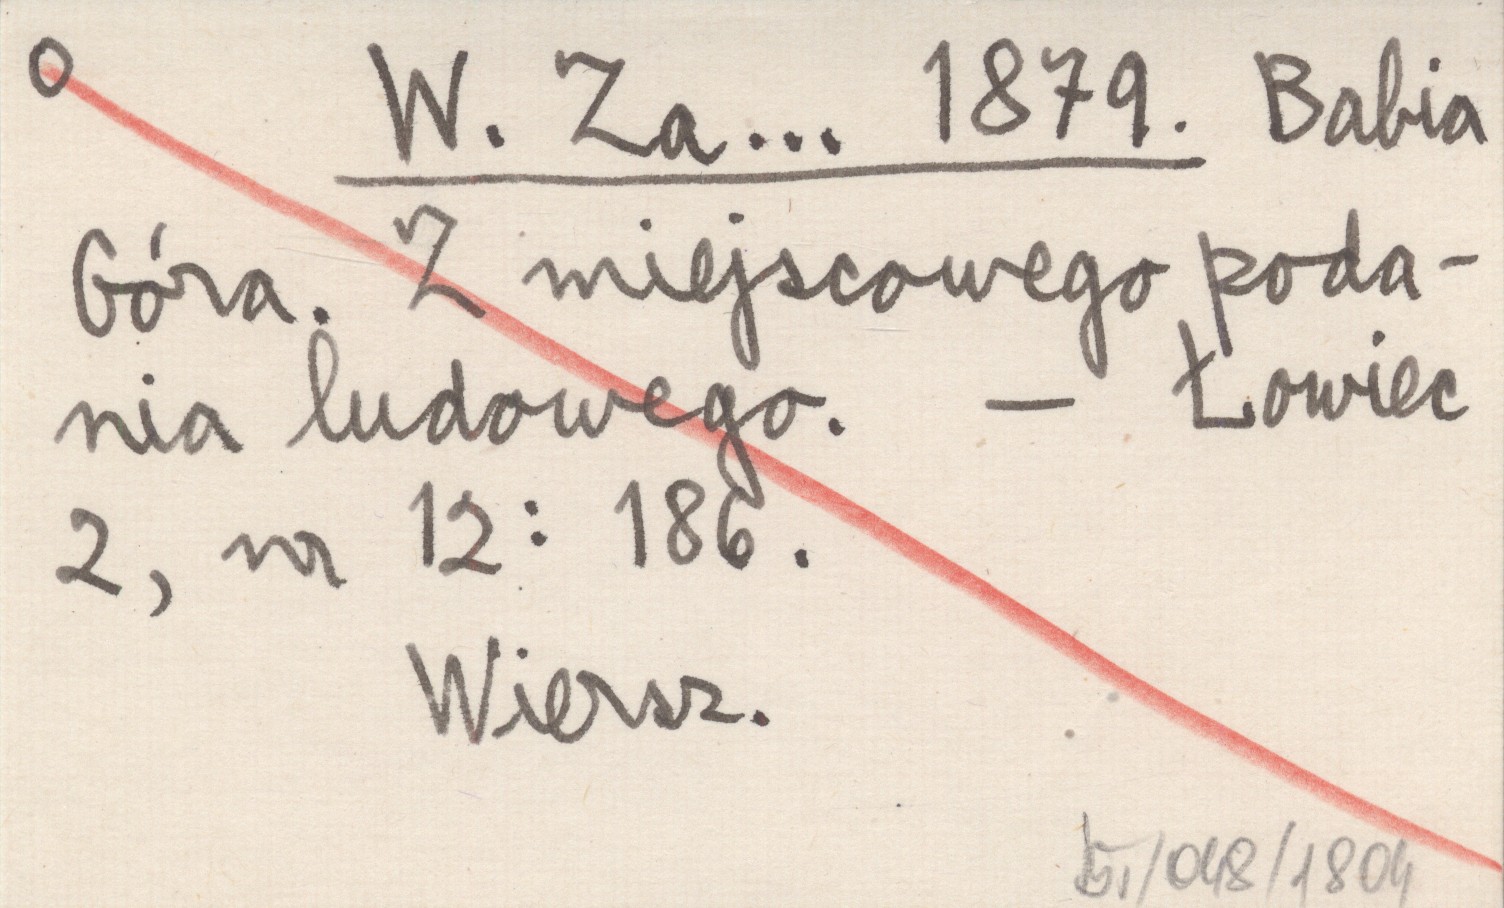 O W. Za... 1879. Babia
Góra. Z miejscowego poda-
nia ludowego. — Łowiec
2, nr 12: 186.
Wiersz.
/048/1804